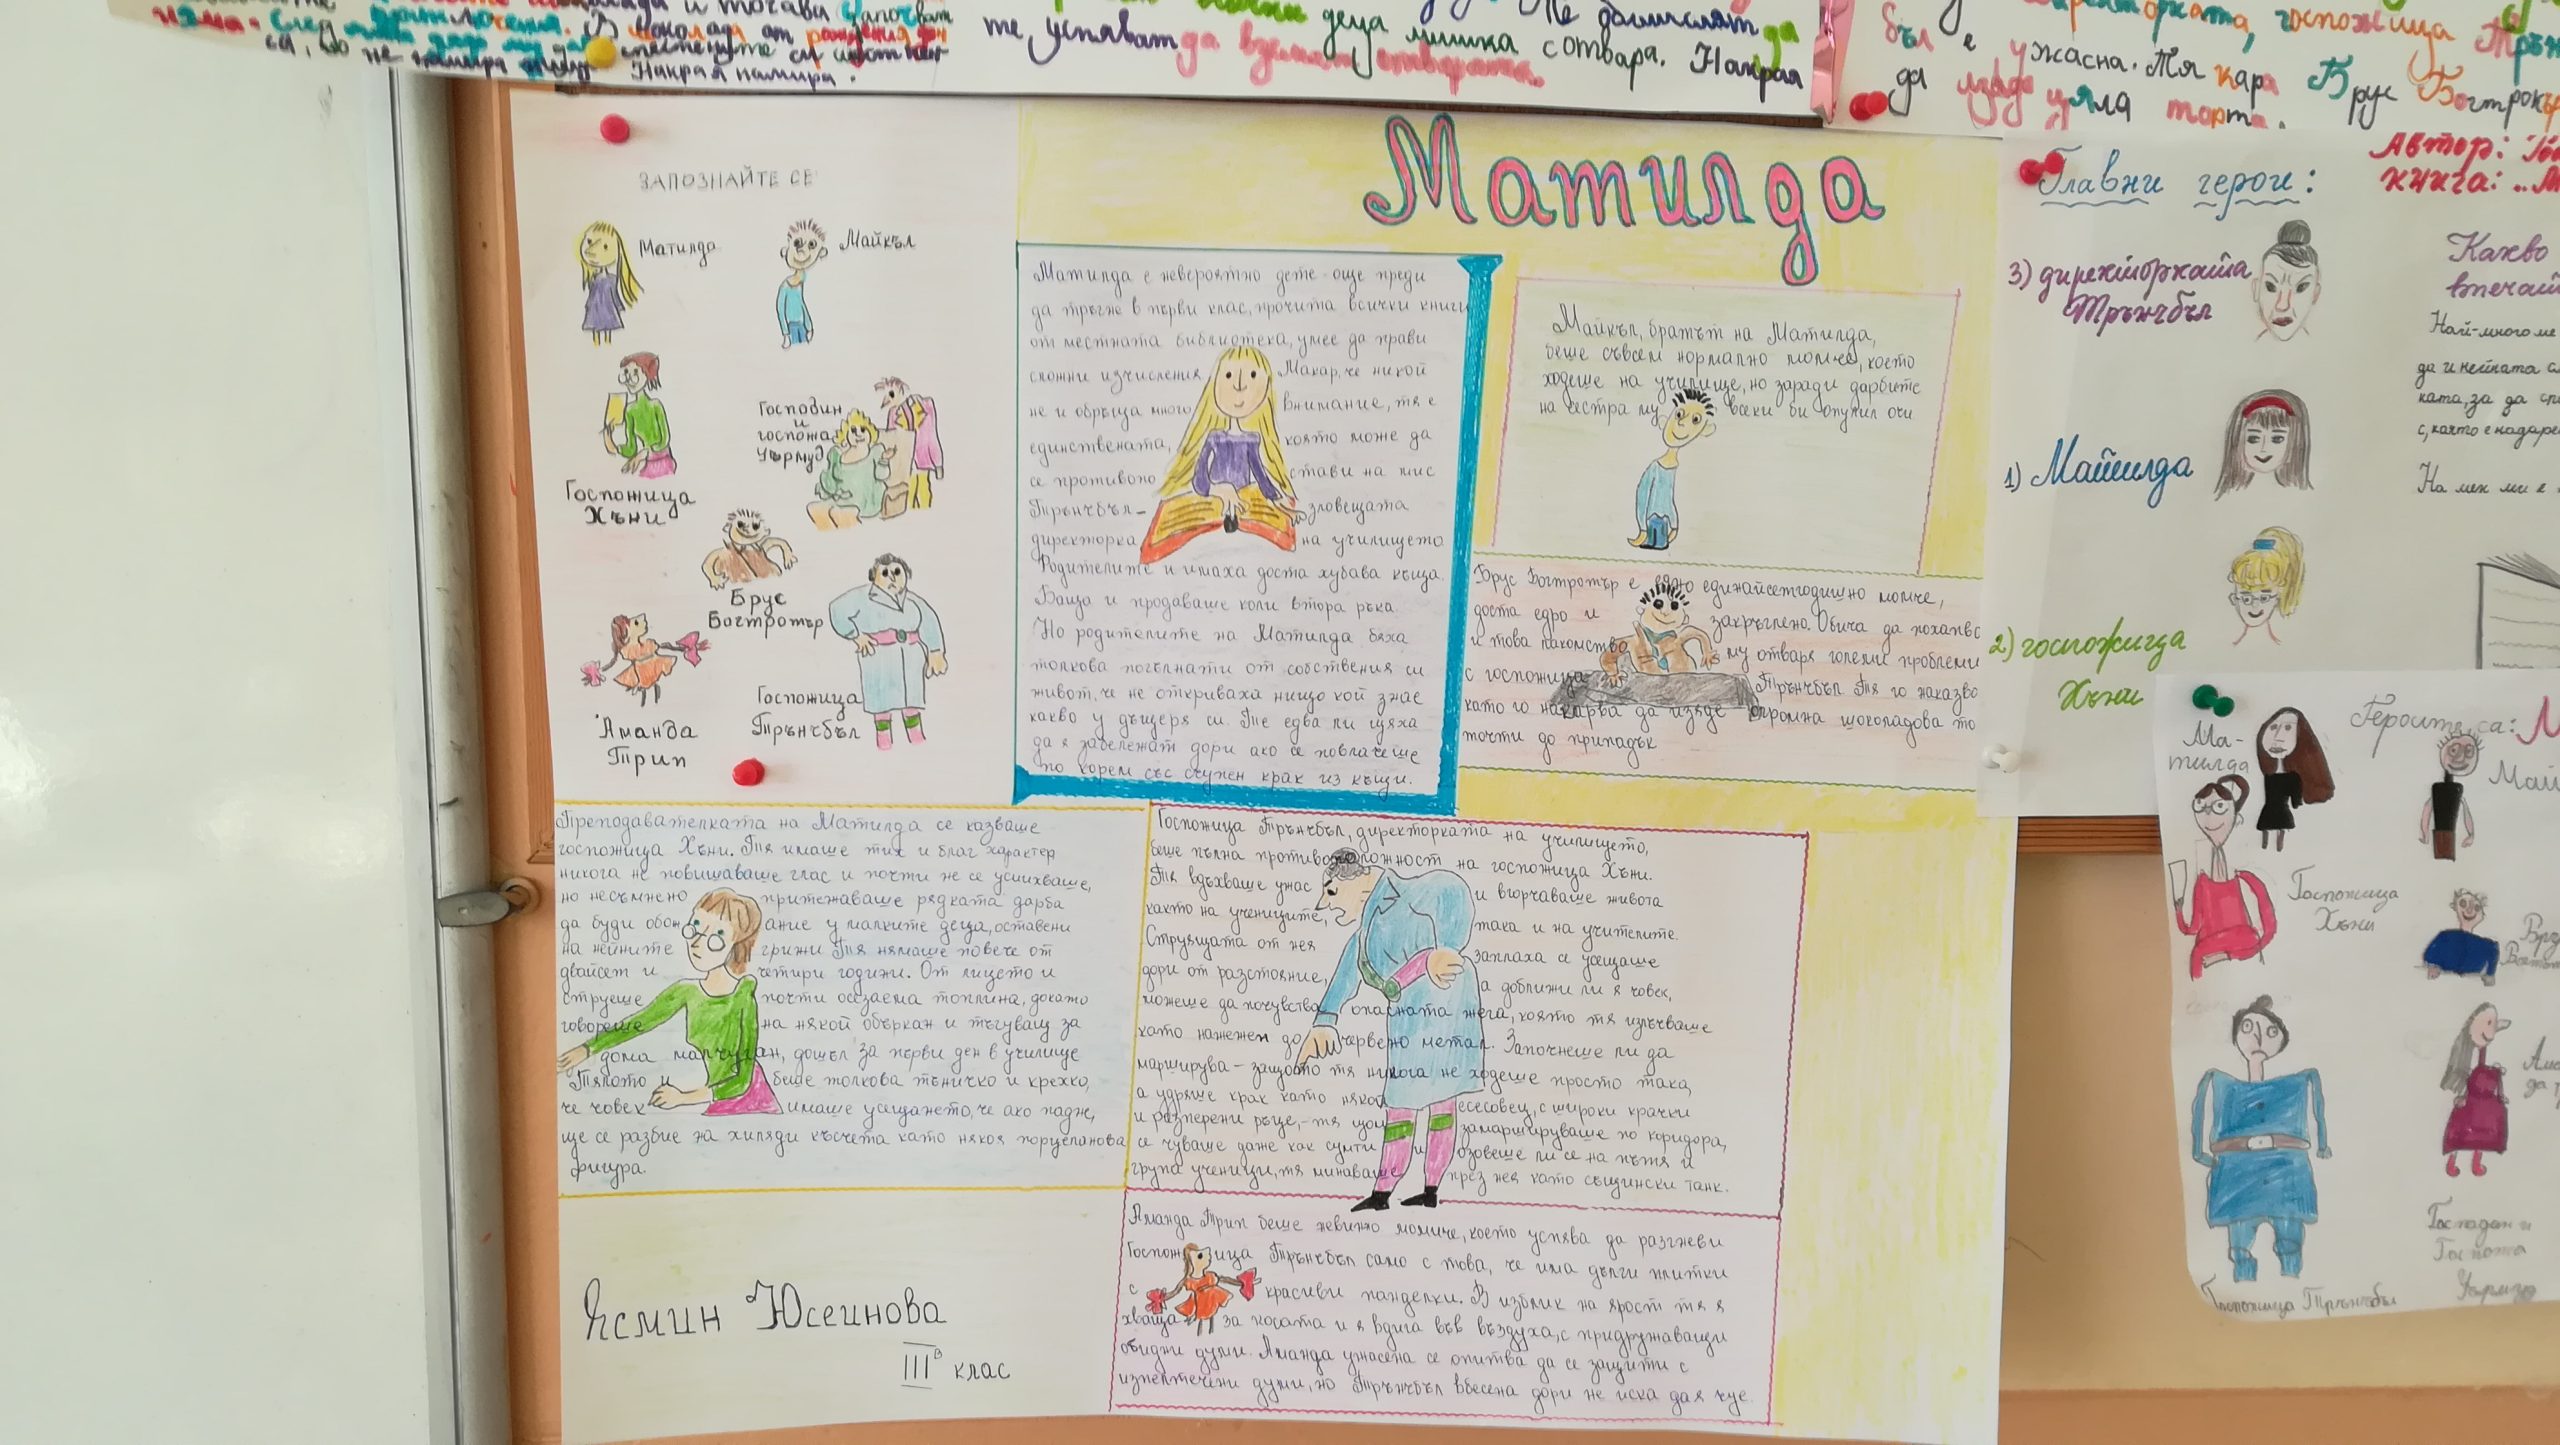 Матилда
ЗАПОЗНАЙТЕ СЕ
Матилда
Майкъл
Госпожица
Хъни
Господин
и
госпожа
Уърмуд
Брус
Богтротър
Аманда
Трип
Госпожица
Трънчбъл
Матилда е невероятно дете още преди
да тръгне в първи клас, прочита всички книги
от местната библиотека, умее да прави
сложни изчисления. Макар, че никой
не и обръща много внимание, тя е
единствената, която може да
се противопо стави на мис
Трънчбъл- зловещата
директорка на училището
Родителите и имаха доста хубава къща.
Баща и продаваше коли втора ръка.
Но родителите на Матилда бяха
толкова погълнати от собствения си
живот, че не откриваха нищо кой знае
какво у дъщеря си. Те едва ли щяха
да я забележат дори ако се повлачеше
по корем със счупен крак из къщи.
Майкъл, братът на Матилда,
беше съвсем нормално момче, което
ходеше на училище, но заради дарбите
на сестра му всеки би опулил очи
Брус Богтротър е едно единайсетгодишно момче,
доста едро и закръглено. Обича да похапва
и това лакомство му отваря големи проблеми
с госпожица Трънчбъл. Тя го наказва
като го накарва да изяде огромна шоколадова то
почти до припадък
Преподавателката на Матилда се казваше
госпожица Хъни. Тя имаше тих и благ характер
никога не повишаваше глас и почти не се усмихваше,
но несъмнено притежаваше рядката дарба
да буди обож ание у малките деца, оставени
на нейните грижи Тя нямаше повече от
двайсет и четири години. От лицето и
струеше почти осезаема топлина, докато
говореше на някой объркан и тъгуващ за
дома малчуган, дошъл за първи ден в училище
Тялото и беше толкова тъничко и крехко,
че човек имаше усещането, че ако падне,
ще се разбие на хиляди късчета като някоя порцеланова
фигура.
Госпожица Трънчбъл, директорката на училището,
беше пълна противоположност на госпожица Хъни.
Тя вдъхваше ужас и вгорчаваше живота
както на учениците, така и на учителите.
Струящата от нея заплаха се усещаше
дори от разстояние, а доближи ли я човек,
можеше да почувства опасната жега, която тя излъчваше
като нажежен до червено метал. Започнеше ли да
марширува – защото тя никога не ходеше просто така,
а удряше крак като някой есесовец, с широки крачки
и разперени ръце,- тя щом замаршируваше по коридора,
се чуваше даже как сумти и озовеше ли се на пътя и
група ученици, тя минаваше през нея като същински танк.
Аманда Трип беше невинно момиче, което успява да разгневи
Госпожица Трънчбъл само с това, че има дълги плитки
с красиви панделки. В изблик на ярост тя я
хваща за косата и я вдига във въздуха, с придружаващи
обидни думи. Аманда ужасена се опитва да се защити с
изпелтечени думи, но Трънчбъл вбесена дори не иска да я чуе.
Ясмин Юсеинова
IIIв клас
те, успяват да вземат отварата.
деца мишка с отвара. Накрая
Накрая намира.
госпожица
е ужасна. Тя кара Брус
да изяде цяла торта.
Главни герои:
Автор:
книга:
3) директорката
Трънчбъл
1) Матилда
2) госпожица
Хъни
Какво
Най-много ме
да и нейната
ката, за да
На мен ми е
Героите са:
Ма-
тилда
Госпожица
Хъни
Господин и
Госпожа
Уърмуд
Госпожица Трънчбъл